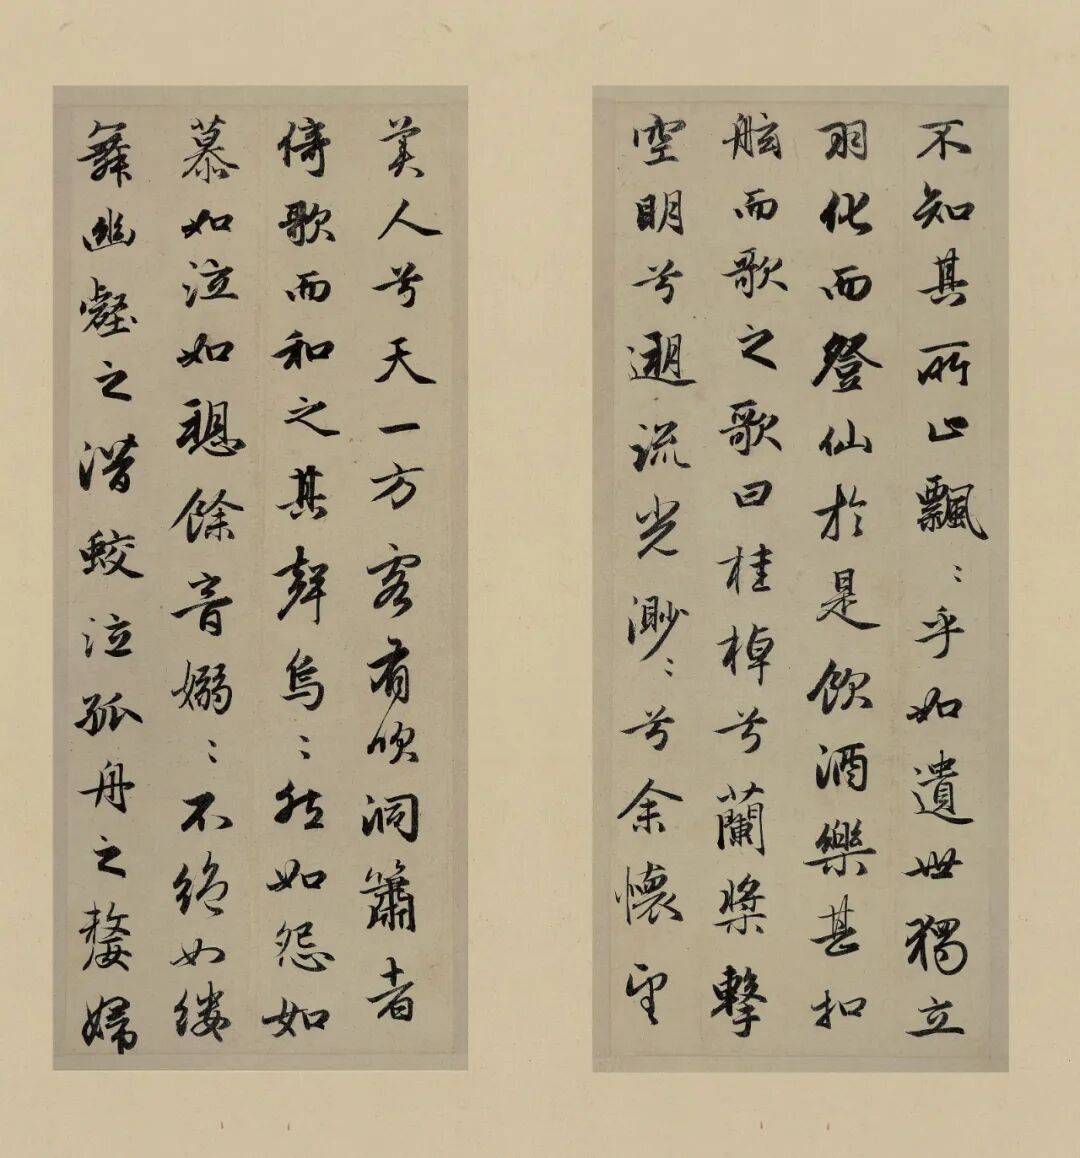 不知其所止飄〻乎如遺世獨立
羽化而登仙於是飲酒樂甚扣
舷而歌之歌曰桂棹兮蘭槳擊
空明兮遡流光渺〻兮余懷望
美人兮天一方客有吹洞簫者
倚歌而和之其聲烏〻然如怨如
慕如泣如聽餘音嫋〻不絕如縷
舞幽壑之潛蛟泣孤舟之嫠婦